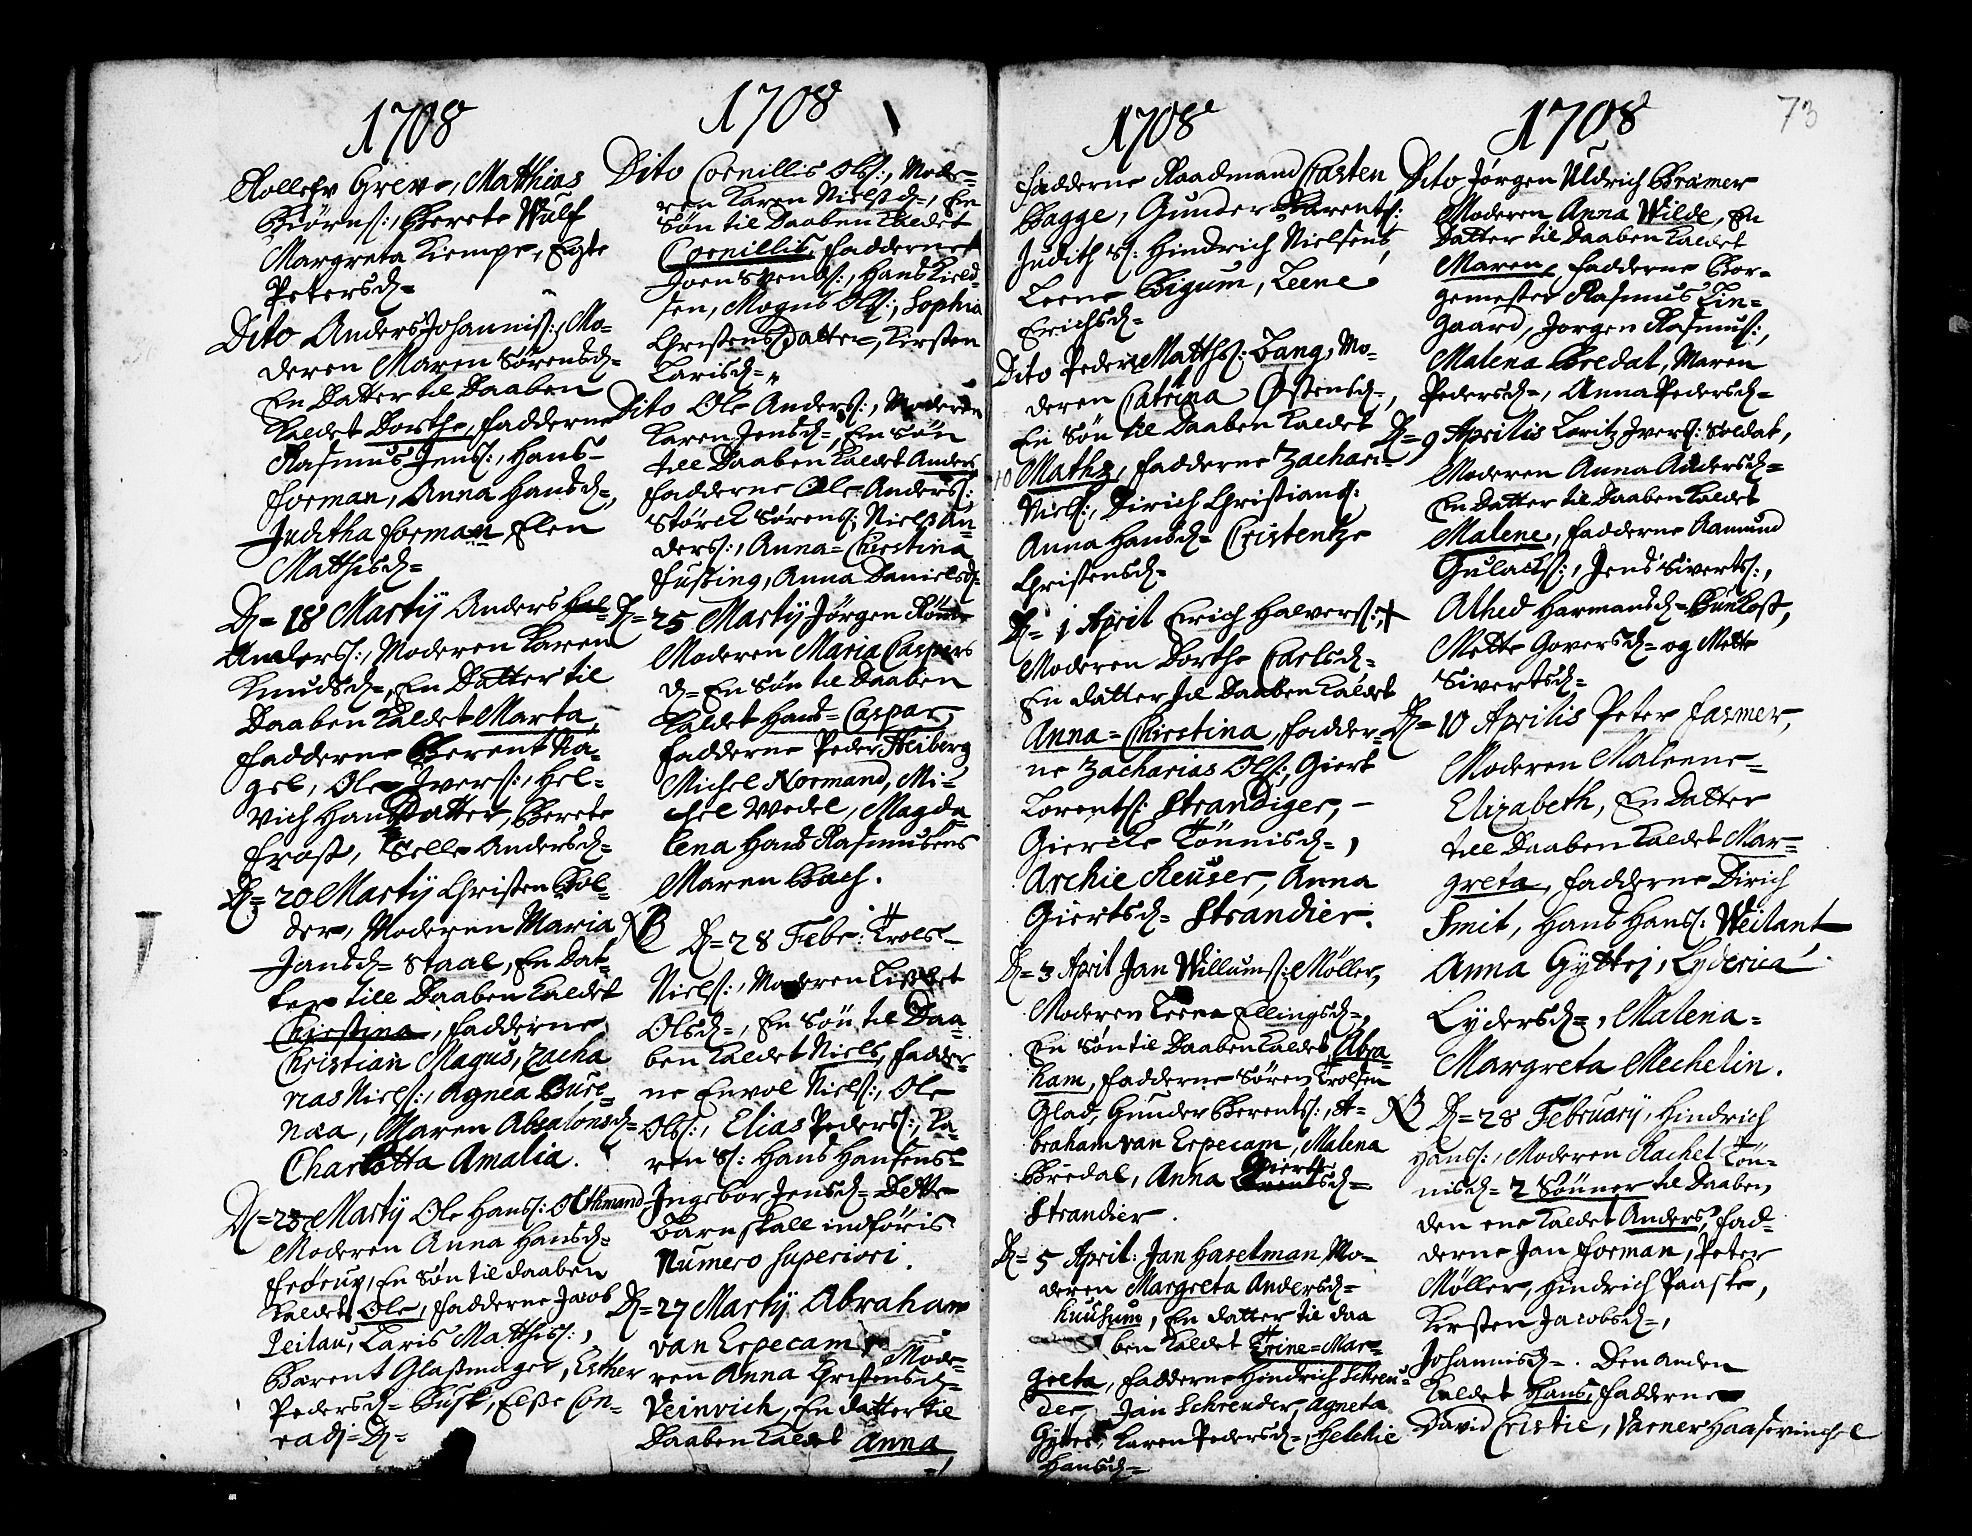 1708
Rollefv Greve, Matthias
Biørns:, Berete Wulf
Margreta Kiempe, Egte
Petersd=
Dito Anders Johannis:, Mo-
deren Maren Sørensd=
En Datter til Daaben
kaldet Dorthe, fadderne
Rasmus Jens:, Hans-
forman, Anna Hansd=,
Juditha forman, Elen
Matthisd=
D= 18 Martij Anders Hal-
Anders:, Moderen Karen
Knudsd=, En Datter til
Daaben kaldet Marta,
fadderne Berent Na-
gel, Ole Ivers:, Hel-
vich Hans Datter, Berete
frost, Selle Andersd=
D= 20 Martij Christen Bol-
der, Moderen Maria
Jansd= Staal, En Dat-
ter till Daaben kaldet
Chirstina, fadderne
Christian Magus, Zacha
rias Niels:, Agnea Bure-
næa, Maren Absalonsd=
Charlotta Amalia.
D= 23 Martij Ole Hans: Olthmand
Moderen Anna Hansd=
, En Søn til daaben
kaldet Ole, fadderne Jacob
Leitau, Laris Matthis:,
Barent Glaßmager, Esther
Pedersd= Busk, Elße Con-
radj=D=
1708
Dito Cornillis Ols:, Mode-
ren Karen Nielsd=, En
Søn til Daaben kaldet
Cornillis, fadderne
Joen Svends:, Hans Kield-
sen, Mogns Ols:, Sophia
Christens Datter, Kirsten
Larisd=
Dito Ole Anders:, Moderen
Karen Jensd=, En Søn
till Daaben kaldet Anders
fadderne Ole Anders:
Størck Sørens: Niels An-
ders:, Anna=Chirstina
Fusting, Anna Danielsd=
D= 25 Martij Jørgen
Moderen Maria Caspers
D= En Søn til Daaben
kaldet Hans=Caspar,
fadderne Peder Heiberg
Michel Normand, Mi-
chel Wedel, Magda-
lena Hans Rasmusens
Maren Bach.
NB D= 28 Febr: Trols-
Niels:, Moderen
Olsd=, En Søn til Daa-
ben kaldet Niels, fadder-
ne Envol Niels:, Ole
Ols:, Elias Peders:, Ka-
ren S: Hans Hansens-
Ingebor Jensd= Dette
Barn skall indføris
Numero superiori.
D= 27 Martij Abraham
van Erpecam, Mode-
ren Anna Christensd=
Veinvich, En datter til
Daaben kaldet Anna
1708
fadderne Raadmand Carsten
Bagge, Gunder Barents:
Judith S: Hindrich Nielsens,
Leene Bigum, Leene
Erichsd=
Dito Peder Matths: Lang, Mo-
deren Catrina Østensd=,
En Søn til Daaben kaldet
Maths, fadderne Zachari-
Niels:, Dirich Christians:
Anna Hansd= Cristentze
Christensd=
D= 1 April Erich Halvers:
Moderen Dorthe Carlsd=
En datter til Daaben kaldet
Anna=Chirstina, fadder-
ne Zacharias Ols:, Giert
Lorents: Strandiger, -
Giercke Tönnisd=,
Archie Reuser, Anna
Giertsd= Strandier.
D= 3 April Jan Willums: Møller,
Moderen Leene Ellingsd=,
En Søn til Daaben kaldet Abra-
ham, fadderne Søren Trolsen
Glad, Gunder Berents:, A-
braham van Erpecam, Malena
Bredal, Anna Giertsd=
Strandier.
D= 5 April: Jan Haselman, Mo-
deren Margreta Andersd=
Kuusum, En datter til daa
ben kaldet Trine=Mar-
greta, fadderne Hindrich Schreu-
der, Jan Schreuder, Agneta
Gytter, Karen Pedersd=, Helchie
Hansd=
1708
73
Dito Jørgen Uldrich Bramer
Moderen Anna Wilde, En
Datter til Daaben kaldet
Maren, fadderne Bor-
gemester Rasmus Lin-
gaard, Jørgen Rasmus:,
Malena Bredal, Maren
Pedersd=, Anna Pedersd=
D= 9 Aprilis Loritz Ivers: Soldat,
Moderen Anna Andersd=
En Datter til Daaben kaldet
Malene, fadderne Aamund
Gulachs:, Jens Siverts:,
Alhed Harmansd= Bunkost,
Mette Goversd= og Mette
Sivertsd=
D= 10 Aprilis Peter Fasmer,
Moderen Maleene-
Elizabeth, En Datter
till Daaben kaldet Mar-
greta, fadderne Dirich
Smit, Hans Hans: Weilant
Anna Gyttej, Lyderica
Lydersd=, Malena-
Margreta Mechelin.
NB D= 28 February, Hindrich
Hans:, Moderen Rachel Tön-
nisd= 2 Sønner til Daaben,
den ene kaldet Anders, fad-
derne Jan Forman, Peter
Møller, Hindrich Paaske,
Kirsten Jacobsd=,
Johannisd=. Den anden
kaldet Hans, fadderne
David Cristie, Varner Haasewinchel